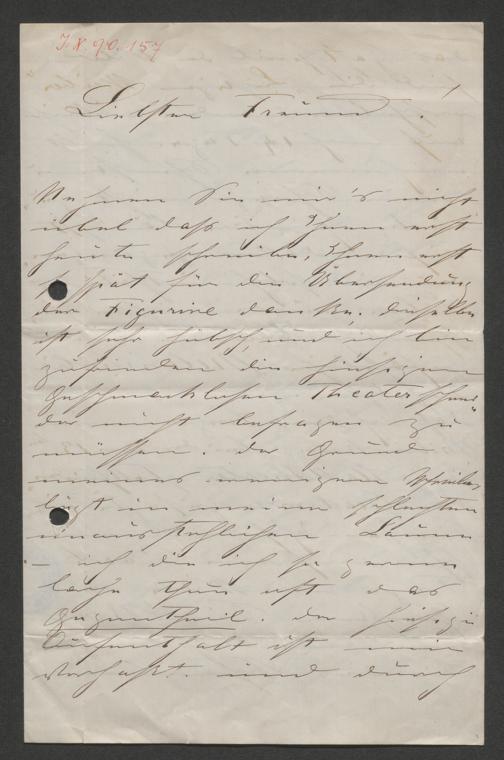 I.N. 90.157
Liebster Freund!
Nehmen Sie mir's nicht
übel daß ich Ihnen erst
heute schreibe, Ihnen erst
so spät für die Übersendung
der Figurine danke, dieselbe
ist sehr hübsch, und ich bin
zufrieden die hiesigen
geschmacklosen Theaterschnei
der nicht befragen zu
müssen. der Grund
meines wenigen Schreibens
liegt in meiner schlechten
unausstehlichen Laune
– ich die ich so gerne
lache thue oft das
Gegentheil. der hiesige
Aufenthalt ist mir
verhaßt. und durch